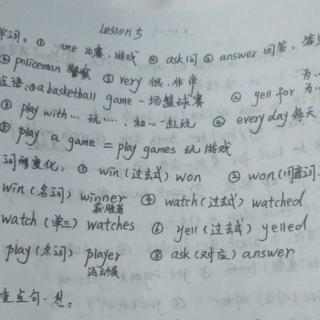 Lesson 5
单词：① ame 比赛，游戏 ② ask 问 ③ answer 回答、答
policeman 警察 ⑤ very 很，非常 为…
短语：① a basketball game 一场篮球赛 ② yell for 为…
③ play with … 玩……；和…一起玩 ④ every day 每天
⑤ play a game = play games 玩游戏
词形变化：① win (过去式) won ② won (同音词)
win (名词) winner 获胜者 ④ watch (过去式) watched
watch (单三) watches ⑥ yell (过去式) yelled
play (名词) player 运动员 ⑧ ask (对应) answer
重点句型：